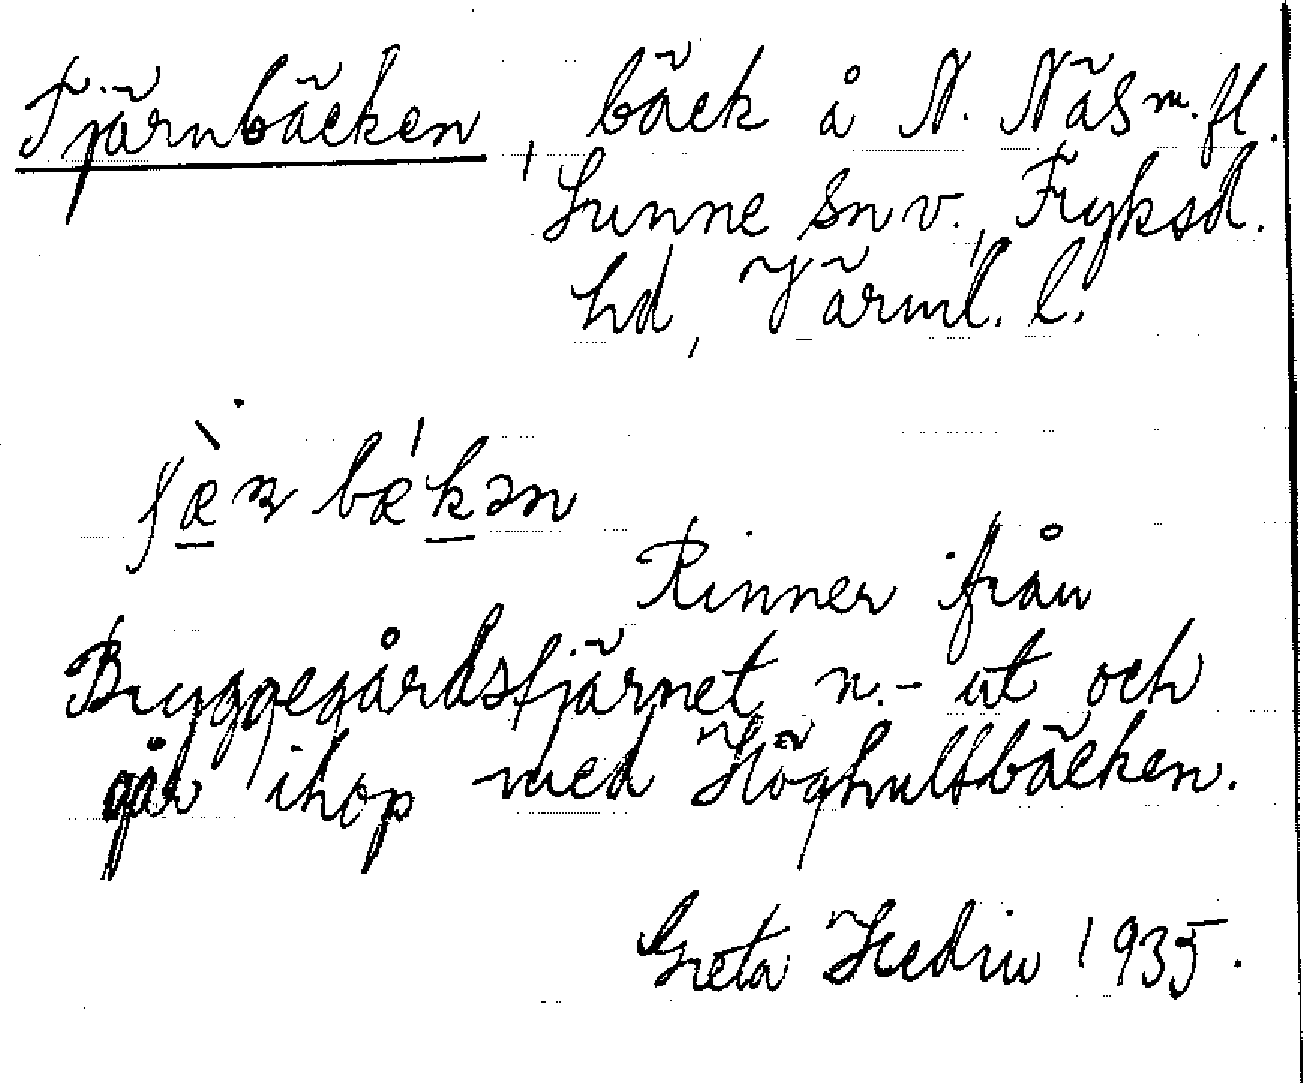 Tjärnbäcken, bäck å N. Näs m. fl.
Sunne snv., Fryksd.
hd, Värml. l.
bækən
Rinner från
Bryggegårdstjärnet n.- ut och
går ihop med Höghultsbäcken.
Greta Hedin 1935.